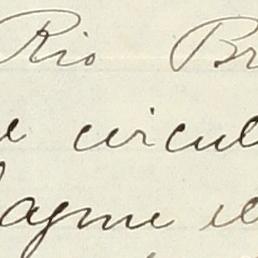 Rio Br
e circul
agne et